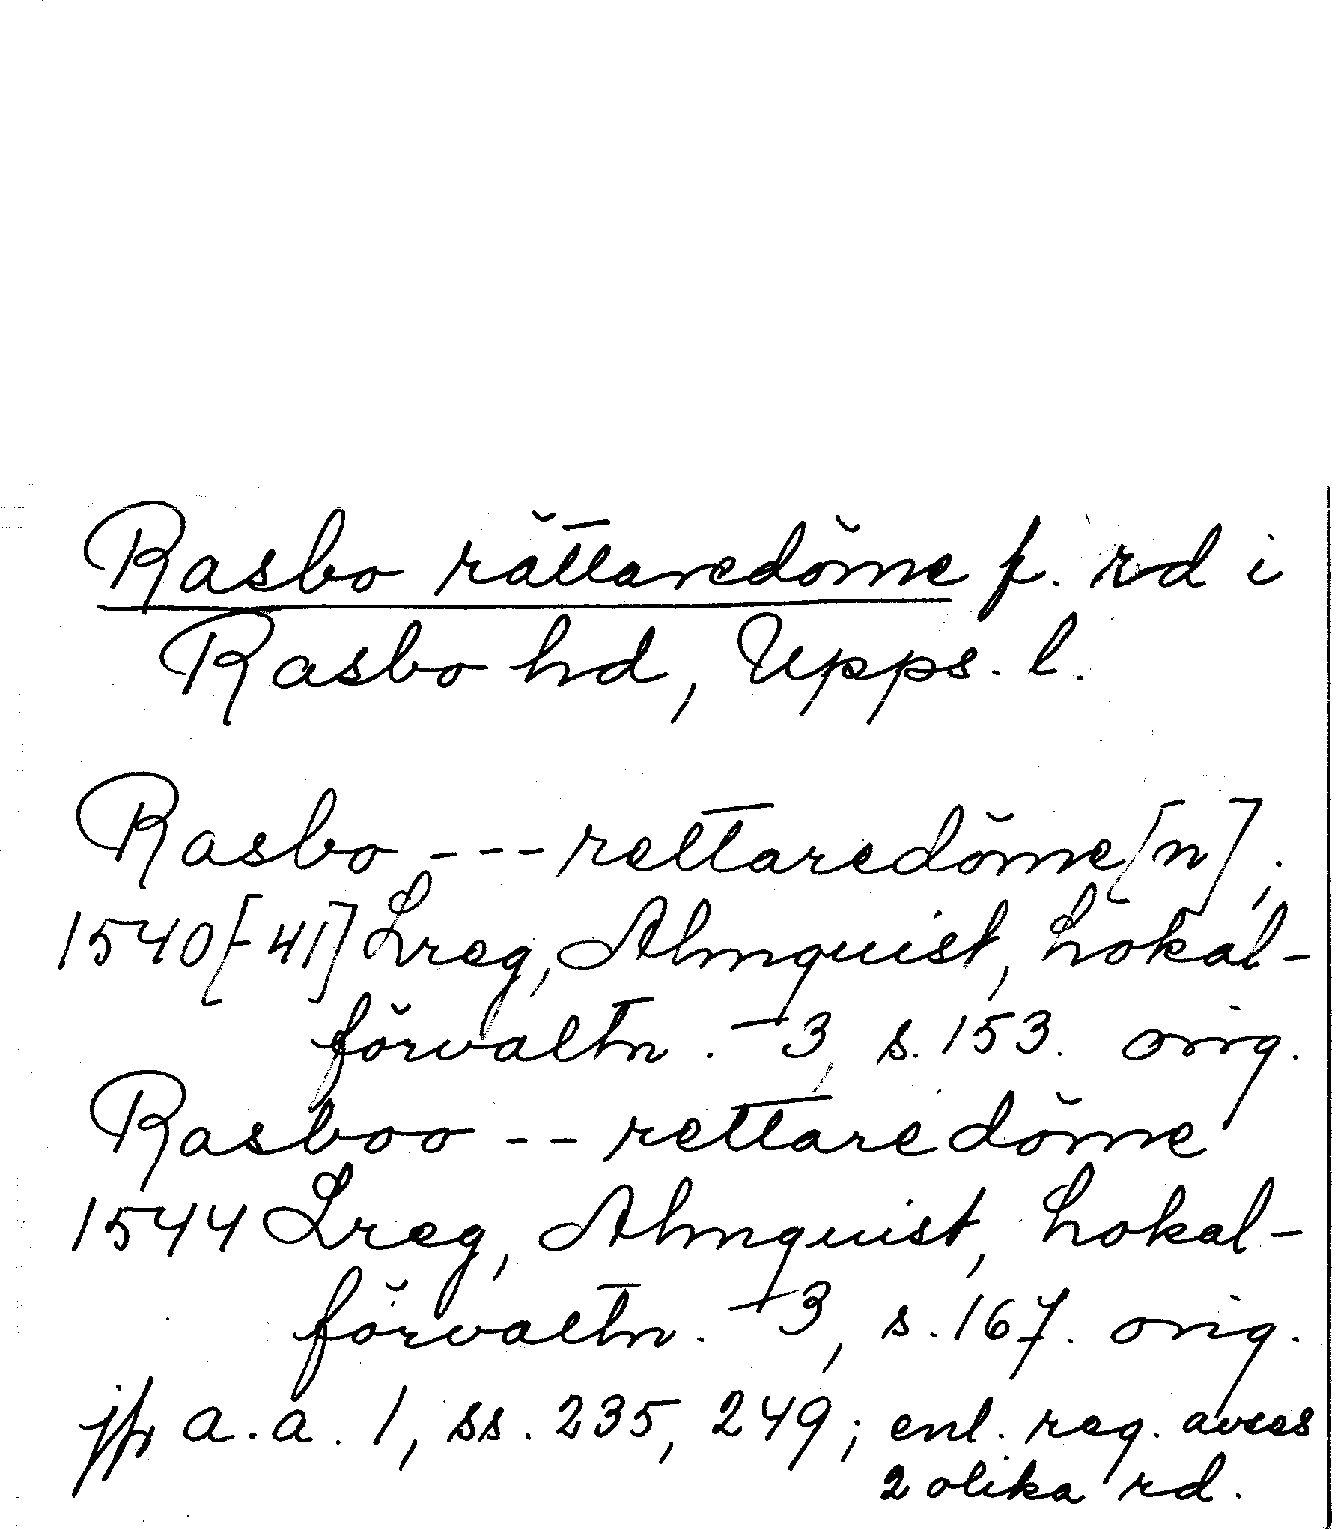 Rasbo rättaredöme f. rd i
Rasbo hd, Upps. l.
Rasbo --- rettaredöme[n];
1540[-41] Lreg, Almquist, Lokal-
förvaltn. 3, s. 153. orig.
Rasboo -- rettaredöme
1544 Lreg, Almquist, Lokal-
förvaltn. 3, s. 167. orig.
jfr a.a. 1, ss. 235, 249; enl. reg. avses
2 olika rd.